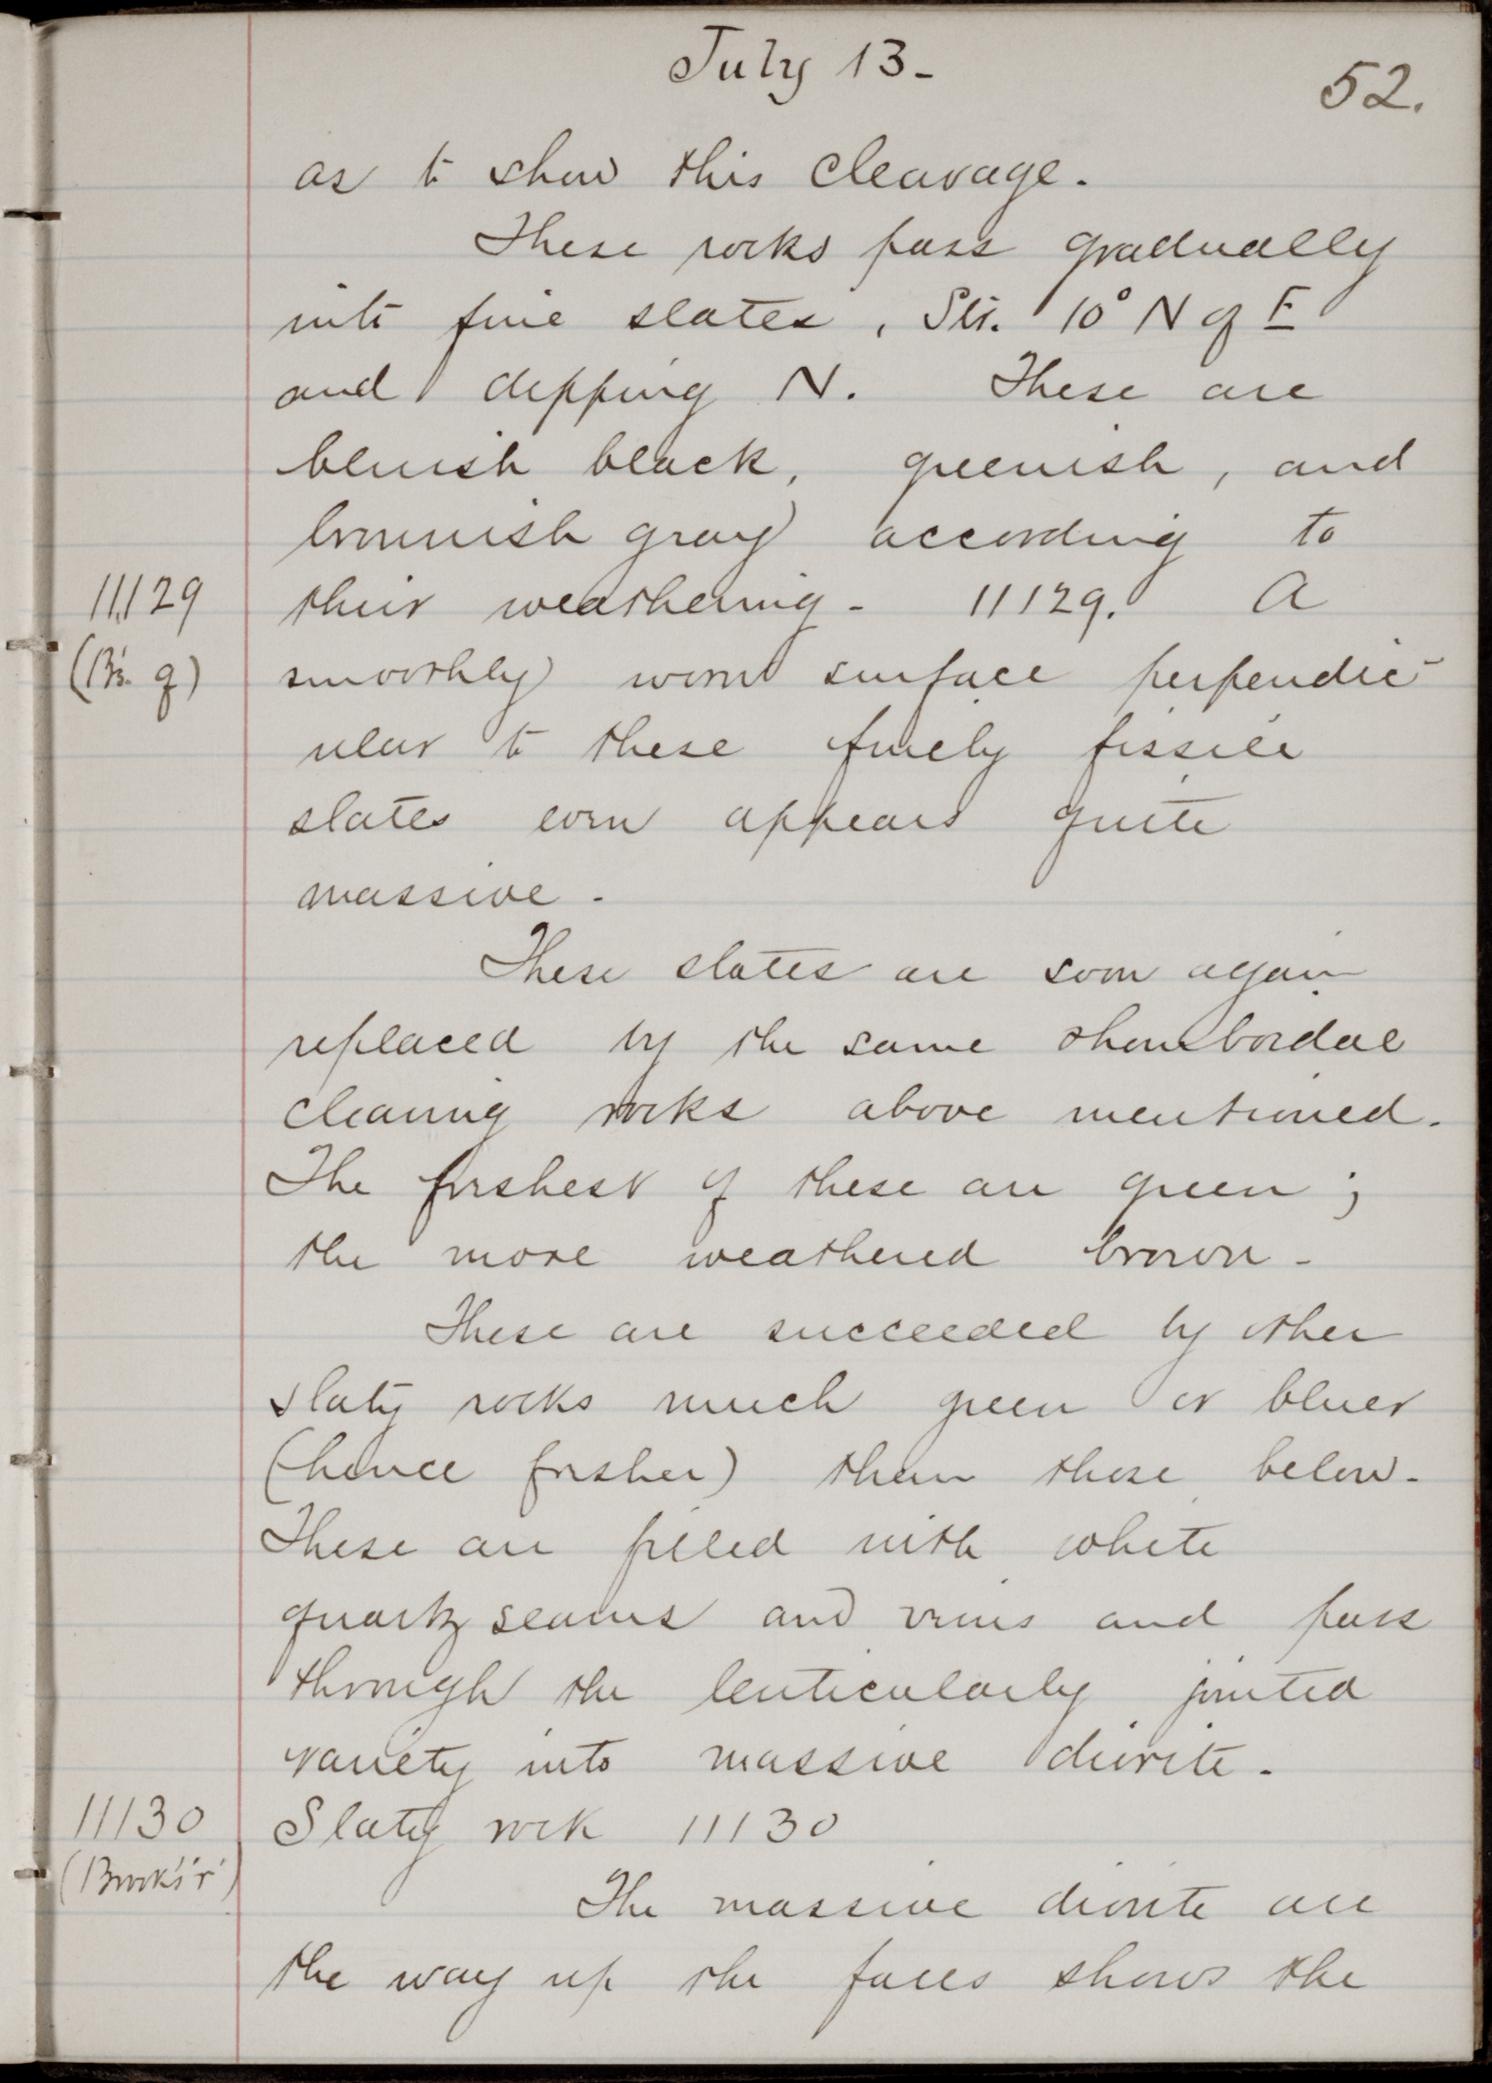 July 13-
52.
as to show this cleavage.
These rocks pass gradually
into fine slates, Str. 10° N of E
and dipping N. These are
bluish black, greenish, and
brownish gray according to
11129
their weathering - 11129. A
(B's. q)
smoothly worn surface perpendic-
ular to these finely fissile
slates even appears quite
massive -
These slates are soon again
replaced by the same rhombordal
cleaving rocks above mentioned.
The freshest of these are green ;
the more weathered brown -
These are succeeded by other
slaty rocks much green or bluer
(hence fresher) than those below -
These are filled with white
quartz seams and veins and pass
through the lenticularly jointed
variety into massive diorite -
11130
Slaty rock 11130
(Brooks' 'r')
The massive diorite all
the way up the faces shows the